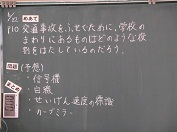 6/2 めあて
P10 交通事故をふせぐために、学校の
まわりにあるものはどのような役
割をはたしているのだろう。
問題 (予想)
・信号機
まとめ ・白線
・せいげん速度の標識
・カーブミラー